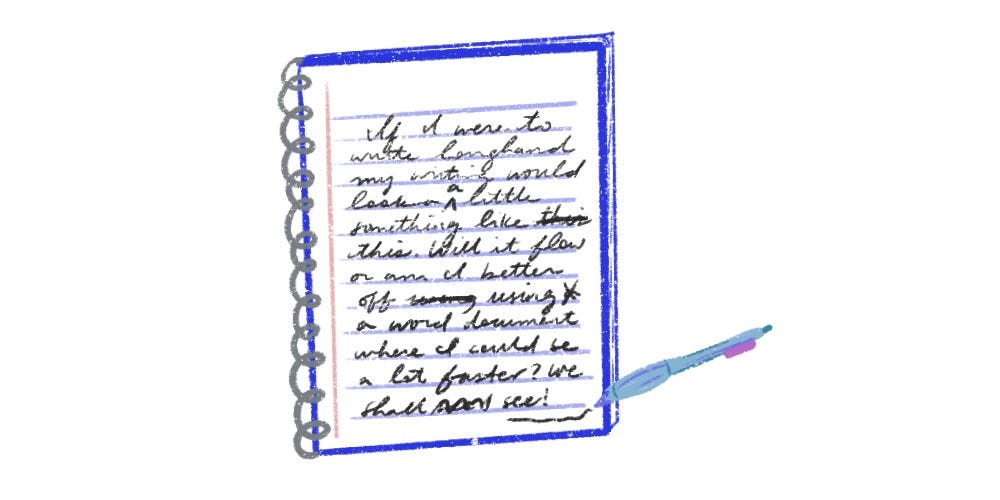 If I were to
write longhand
my writing would
look a little
something like this
this. Will it flow
or am I better
off using using
a word document
where I could be
a lot faster? We
shall see!